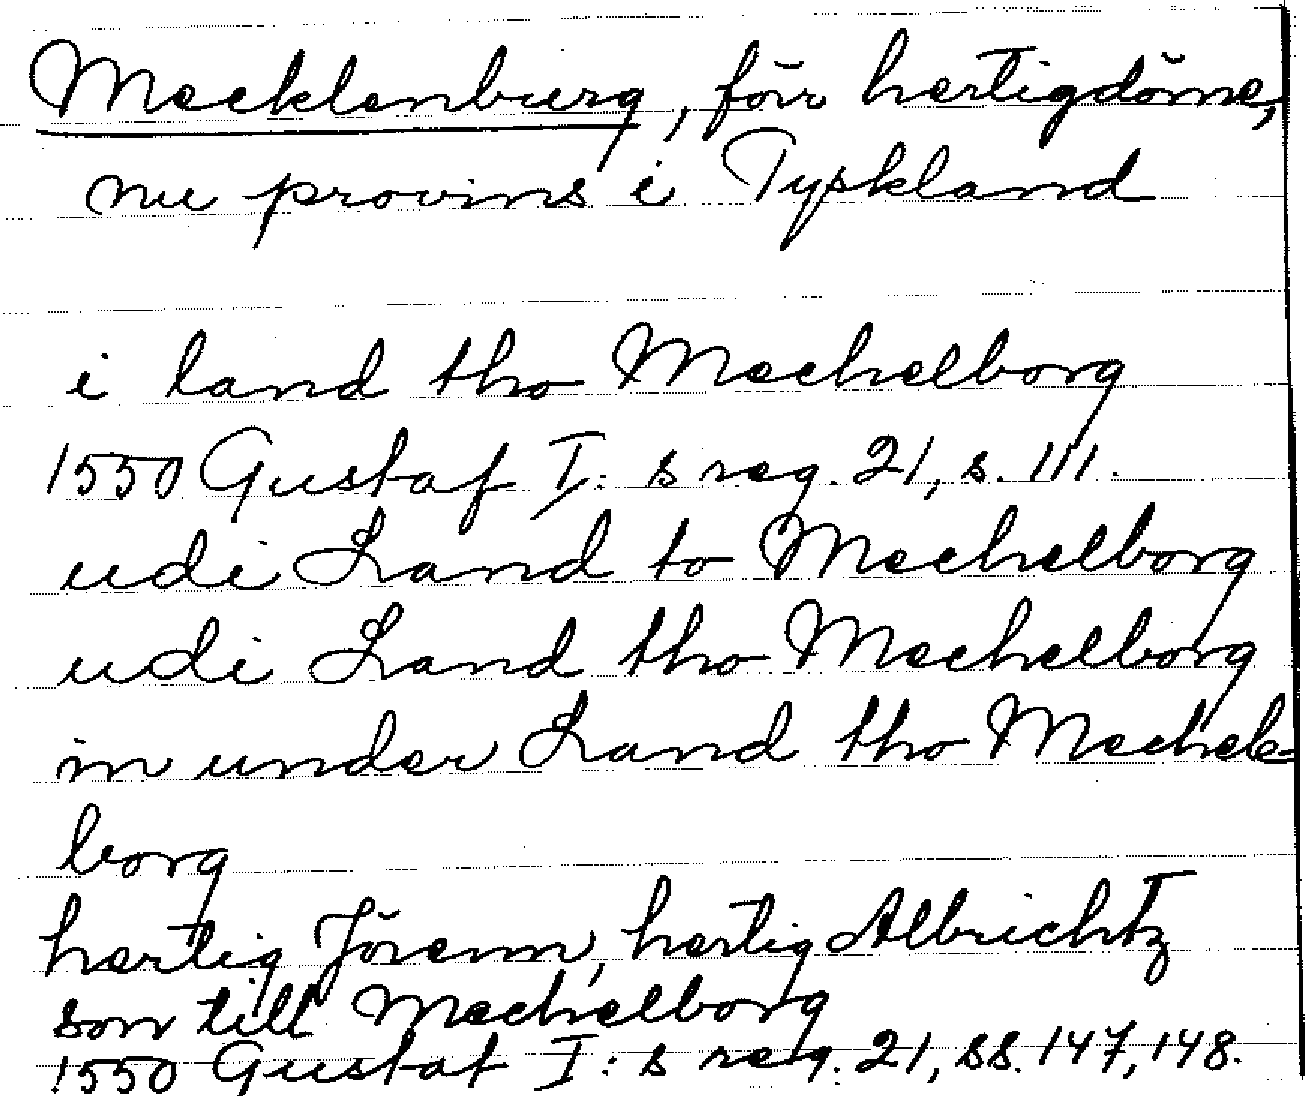 Mecklenburg, förr hertigdöme,
nu provins i Tyskland
i land tho Mechelborg
1550 Gustaf I:s reg. 21, s. 111.
udi Land to Mechelborg
udi Land tho Mechelborg
in under Land tho Mechel-
borg
hertig Jörenn, hertig Albrichtz
son till Mechelborg
1550 Gustaf I:s reg. 21, ss. 147, 148.